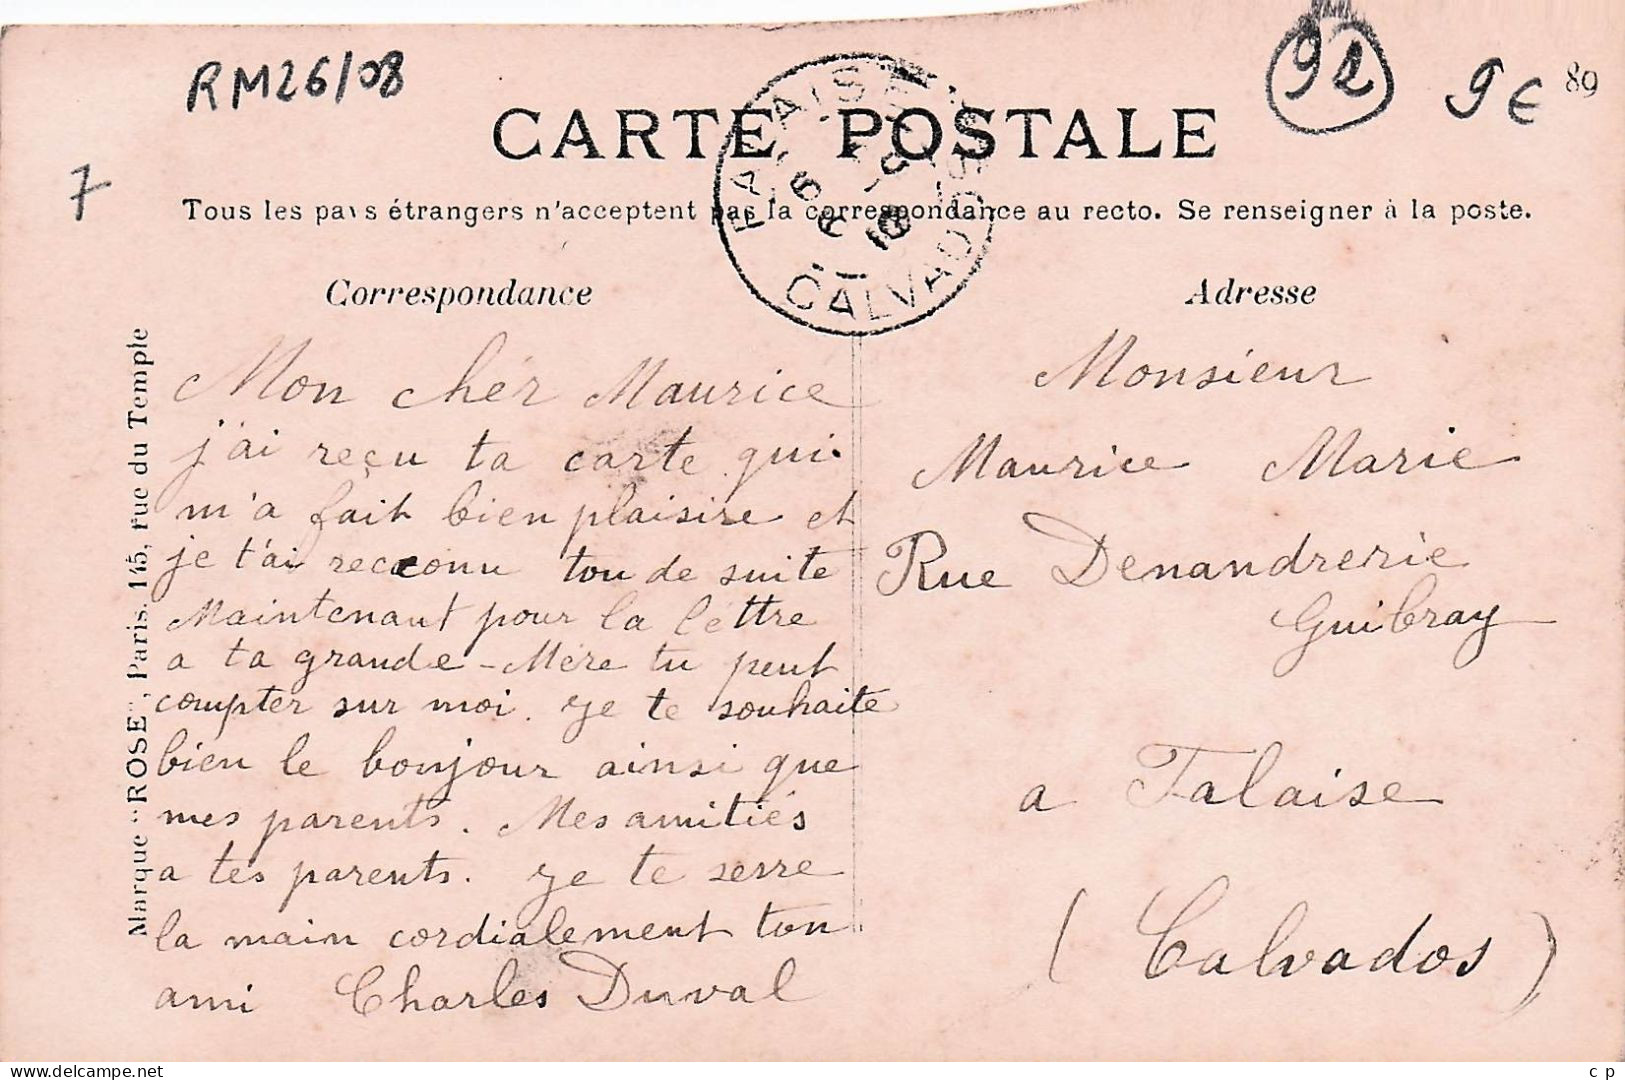 RM26/08
92
9€
89
7
CARTE POSTALE
Tous les pays étrangers n'acceptent pas la correspondance au recto. Se renseigner à la poste.
FALAISE
CALVADOS
Correspondance
Mon chér Maurice
j'ai reçu ta carte qui
m'a fait bien plaisire et
je t'ai recconu tou de suite
Maintenant pour la lettre
a ta grande-Mére tu peut
compter sur moi. Je te souhaite
bien le bonjour ainsi que
mes parents. Mes amitiés
a tes parents. Je te serre
la main cordialement ton
ami Charles Duval
Adresse
Monsieur
Maurice Marie
Rue Denandrerie
Guibray
a Falaise
(Calvados)
Marque "ROSE", Paris. 145, rue du Temple
delcampe.net
c p